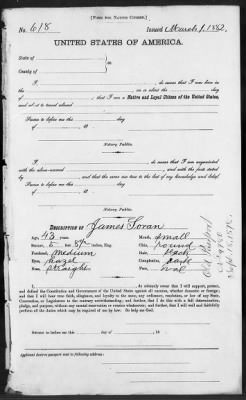 [FORM FOR NATIVE CITIZEN.]
No. 618 Issued March 1, 1882.
UNITED STATES OF AMERICA.
State of
County of
I, do swear that I was born in the
on or about the day
of that I am a Native and Loyal Citizen of the United States,
and about to travel abroad
Sworn to before me this day
of
Notary Public.
I, do swear that I am acquainted
with the above-named and with the facts stated
by and that the same are true to the best of my knowledge and belief.
Sworn to before me this day
of
Notary Public.
DESCRIPTION OF James
Age, 43 years. Mouth, small
Stature, 5 feet inches, Eng. Chin, round
Forehead, medium Hair, black
Eyes, hazel Complexion, dark
Nose, straight Face, oval
Old Passport
Sept.
I, do solemnly swear that I will support, protect,
and defend the Constitution and Government of the United States against all enemies, whether domestic or foreign;
and that I will bear true faith, allegiance, and loyalty to the same, any ordinance, resolution, or law of any State,
Convention, or Legislature to the contrary notwithstanding; and further, that I do this with a full determination,
pledge, and purpose, without any mental reservation or evasion whatsoever; and further, that I will well and faithfully
perform all the duties which may be required of me by law. So help me God.
Sworn to before me this day of 18
Applicant desires passport to be sent to